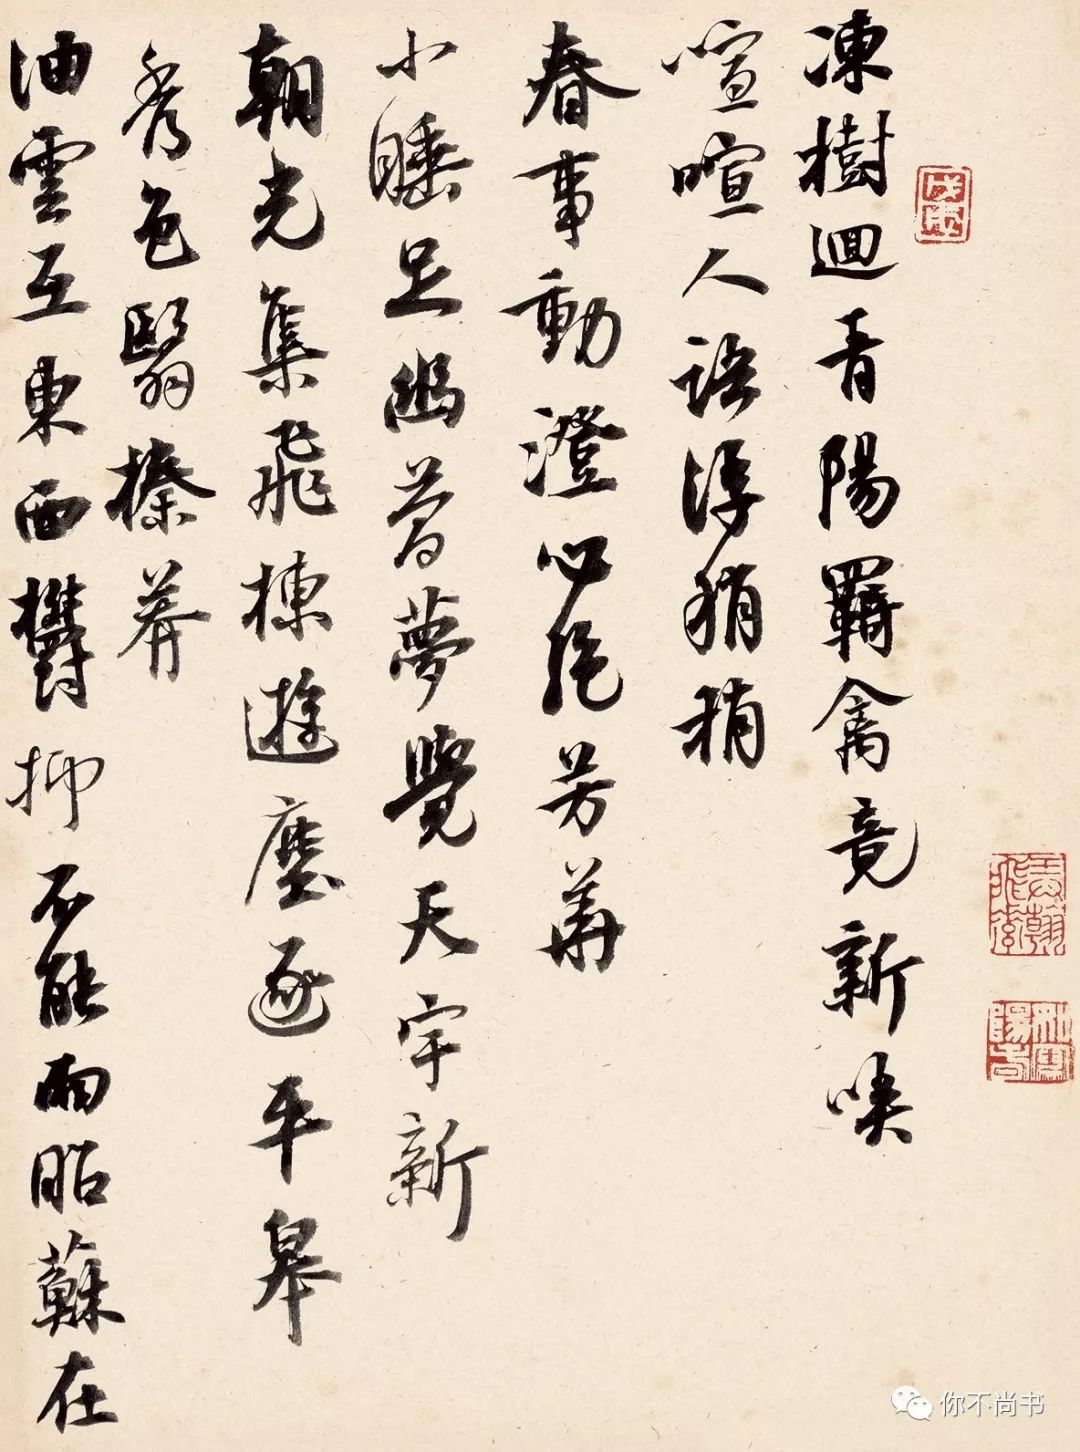 凍樹迴青陽羈禽竟新喚
喧喧人語浮稍稍
春事動澄心芳華
小睡足幽夢覺天宇新
朝光集飛棟遊塵逐平皋
秀色翳榛莽
油雲互東西欝抑不能雨昭蘇在
你不尚书